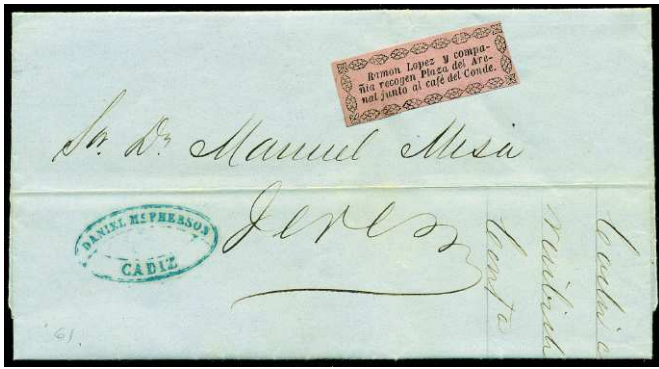 Ramon Lopez y compa-
ñia recogen Plaza del Are-
nal junto al café del Conde.
Sor. Dn. Manuel Misa
Jerez
DANIEL MCPHERSON
CADIZ
61.
recibida
Conta